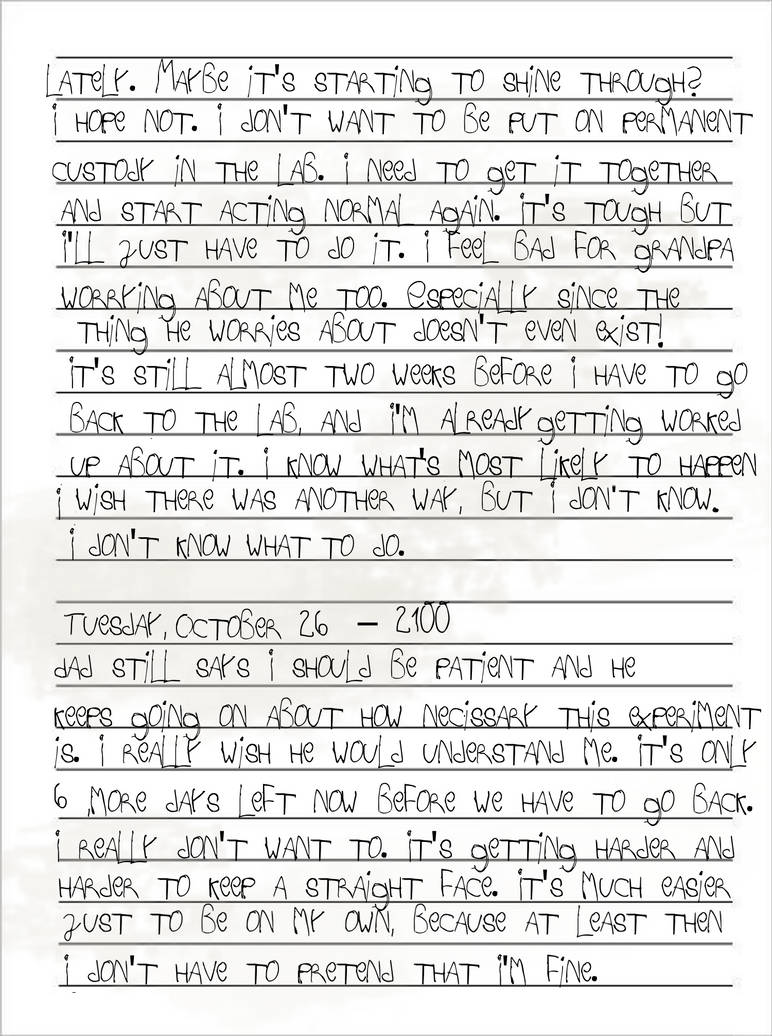 LATELY. MAYBE iT'S STARTiNg TO SHiNE THROUgH?
i HOPE NOT. i dON'T WANT TO BE PUT ON PERMANENT
CUSTOdY iN THE LAB. i NEEd TO gET iT TOgETHER
ANd START ACTiNg NORMAL AgAiN. iT'S TOUgH BUT
i'LL JUST HAVE TO dO iT. i FEEL BAd FOR gRANdPA
WORRYiNg ABOUT ME TOO. ESPECiALLY SiNCE THE
THiNg HE WORRiES ABOUT dOESN'T EVEN EXiST!
iT'S STiLL ALMOST TWO WEEKS BEFORE i HAVE TO gO
BACK TO THE LAB, ANd i'M ALREAdY gETTiNg WORKEd
UP ABOUT iT. i KNOW WHAT'S MOST LiKELY TO HAPPEN
i WiSH THERE WAS ANOTHER WAY, BUT i dON'T KNOW.
i dON'T KNOW WHAT TO dO.
TUESdAY, OCTOBER 26 – 2100
dAd STiLL SAYS i SHOULd BE PATiENT ANd HE
KEEPS gOiNg ON ABOUT HOW NECiSSARY THiS EXPERiMENT
iS. i REALLY WiSH HE WOULd UNdERSTANd ME. iT'S ONLY
6 MORE dAYS LEFT NOW BEFORE WE HAVE TO gO BACK.
i REALLY dON'T WANT TO. iT'S gETTiNg HARdER ANd
HARdER TO KEEP A STRAigHT FACE. iT'S MUCH EASiER
JUST TO BE ON MY OWN, BECAUSE AT LEAST THEN
i dON'T HAVE TO PRETENd THAT i'M FiNE.